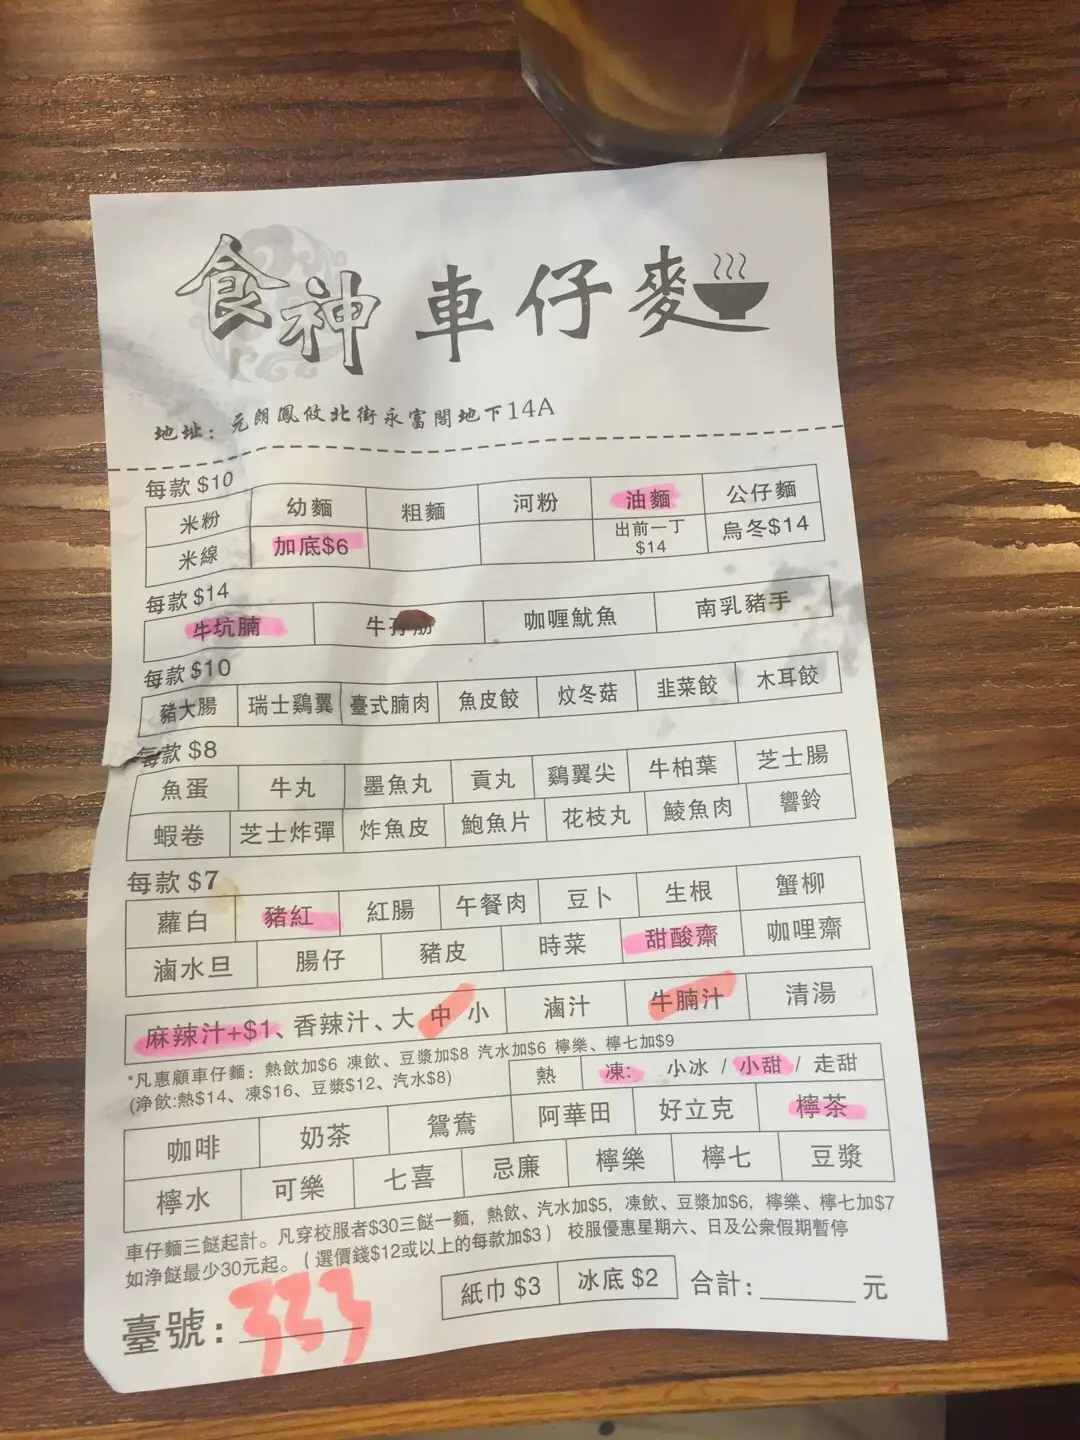 食神車仔麥
地址：元朗鳳攸北街永富閣地下14A
每款 $10
米粉 幼麵 粗麵 河粉 油麵 公仔麵
米線 加底$6 出前一丁 $14 烏冬$14
每款 $14
牛坑腩 牛孖筋 咖喱魷魚 南乳豬手
每款 $10
豬大腸 瑞士鷄翼 臺式腩肉 魚皮餃 炆冬菇 韭菜餃 木耳餃
每款 $8
魚蛋 牛丸 墨魚丸 貢丸 鷄翼尖 牛柏葉 芝士腸
蝦卷 芝士炸彈 炸魚皮 鮑魚片 花枝丸 鯪魚肉 響鈴
每款 $7
蘿白 豬紅 紅腸 午餐肉 豆卜 生根 蟹柳
滷水旦 腸仔 豬皮 時菜 甜酸齋 咖哩齋
麻辣汁+$1、香辣汁、大 中 小 滷汁 牛腩汁 清湯
*凡惠顧車仔麵：熱飲加$6 凍飲、豆漿加$8 汽水加$6 檸樂、檸七加$9
(净飲:熱$14、凍$16、豆漿$12、汽水$8)
熱 凍: 小冰 / 小甜 / 走甜
咖啡 奶茶 鴛鴦 阿華田 好立克 檸茶
檸水 可樂 七喜 忌廉 檸樂 檸七 豆漿
車仔麵三餸起計。凡穿校服者$30三餸一麵，熱飲、汽水加$5，凍飲、豆漿加$6，檸樂、檸七加$7
如净餸最少30元起。（選價錢$12或以上的每款加$3） 校服優惠星期六、日及公衆假期暫停
紙巾 $3 冰底 $2 合計：______元
臺號：323